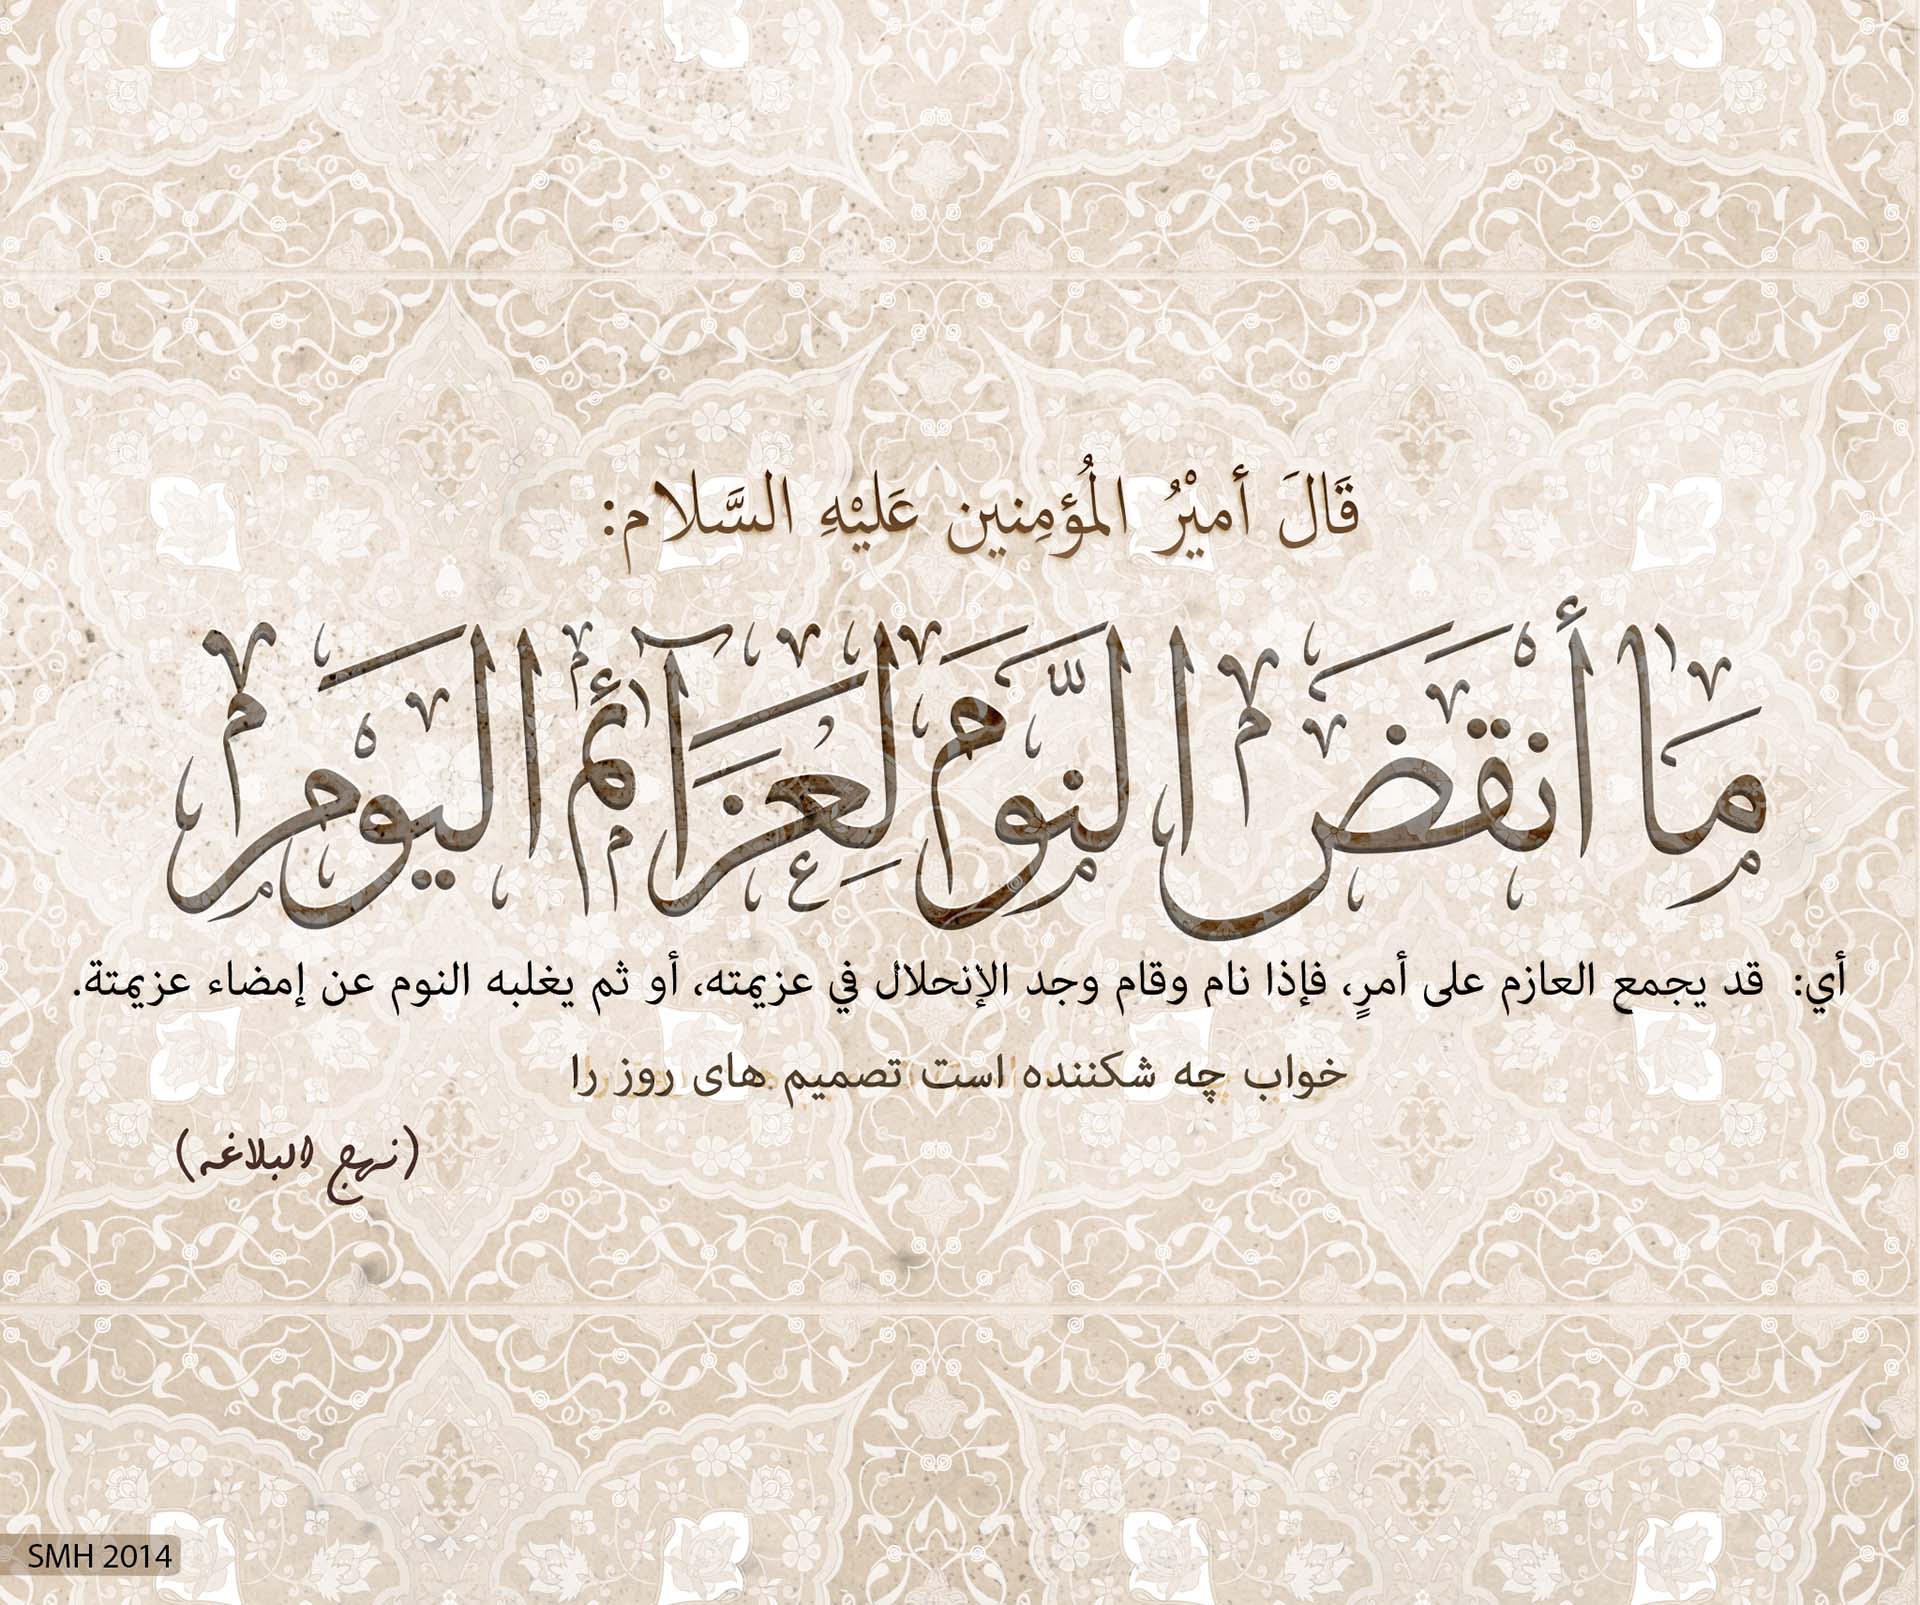 قَالَ أميْرُ المُؤمِنين عَليْهِ السَّلام:
مَا أنْقَضَ النَّومَ لِعَزَآئمِ اليَوْمِ
أي: قد يجمع العازم على أمرٍ، فإذا نام وقام وجد الإنحلال في عزيمته، أو ثم يغلبه النوم عن إمضاء عزيمتة.
خواب چه شکننده است تصمیم های روز را
(نهج البلاغه)
SMH 2014